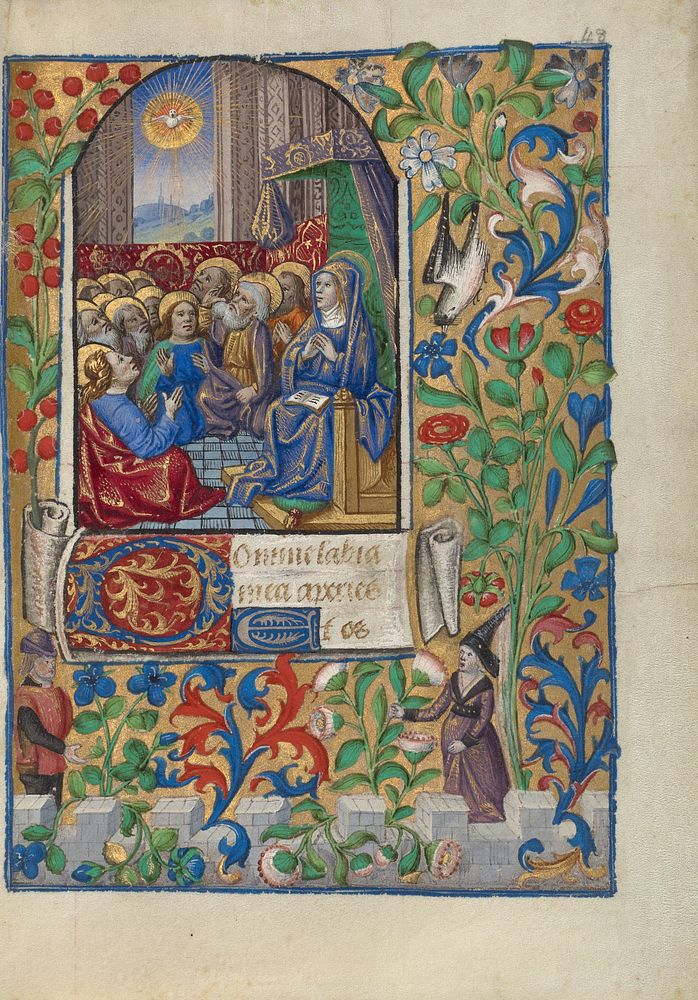 43
Omine labia
mea aperies
t os